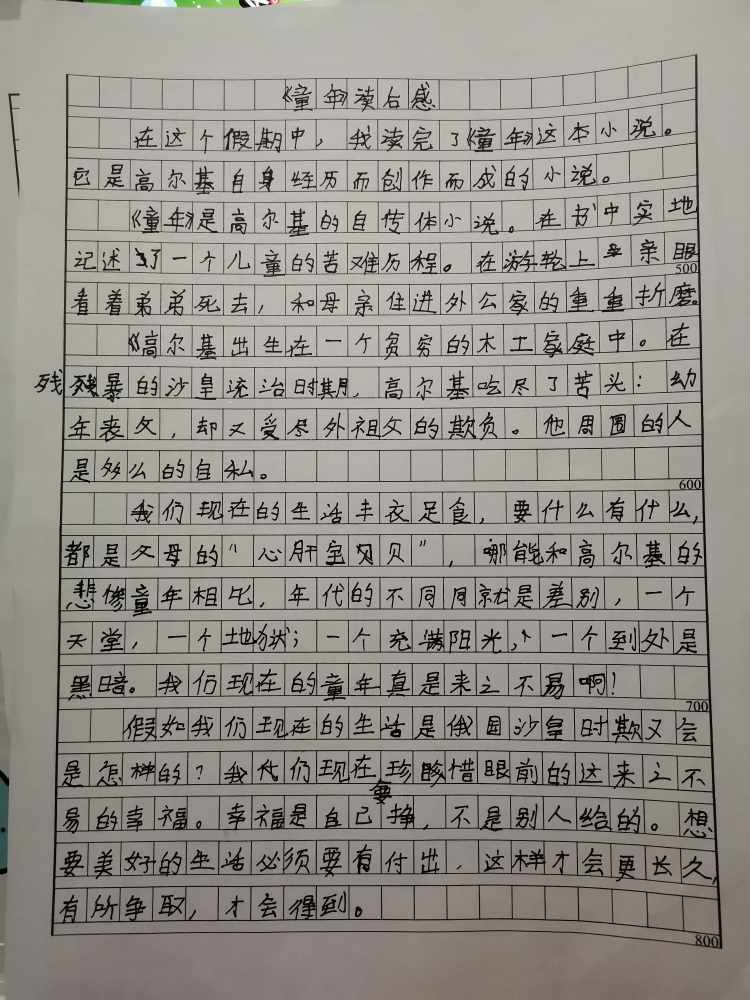 《童年》读后感
在这个假期中，我读完了《童年》这本小说。
它是高尔基自身经历而创作而成的小说。
《童年》是高尔基的自传体小说。在书中实地
记述了一个儿童的苦难历程。在游轮上亲眼
500
看着弟弟死去，和母亲住进外公家的重重折磨。
《高尔基出生在一个贫穷的木工家庭中。在
残暴的沙皇统治时期，高尔基吃尽了苦头：幼
年丧父，却又受尽外祖父的欺负。他周围的人
是多么的自私。
600
我们现在的生活丰衣足食，要什么有什么，
都是父母的“心肝宝贝贝”，哪能和高尔基的
悲惨童年相比，年代的不同同就是差别，一个
天堂，一个地狱；一个充满阳光，一个到处是
黑暗。我们现在的童年真是来之不易啊！
700
假如我们现在的生活是俄国沙皇时欺又会
是怎样的？我代们现在要珍惜眼前的这来之不
易的幸福。幸福是自己挣，不是别人给的。想
要美好的生活必须要有付出，这样才会更长久，
有所争取，才会得到。
800